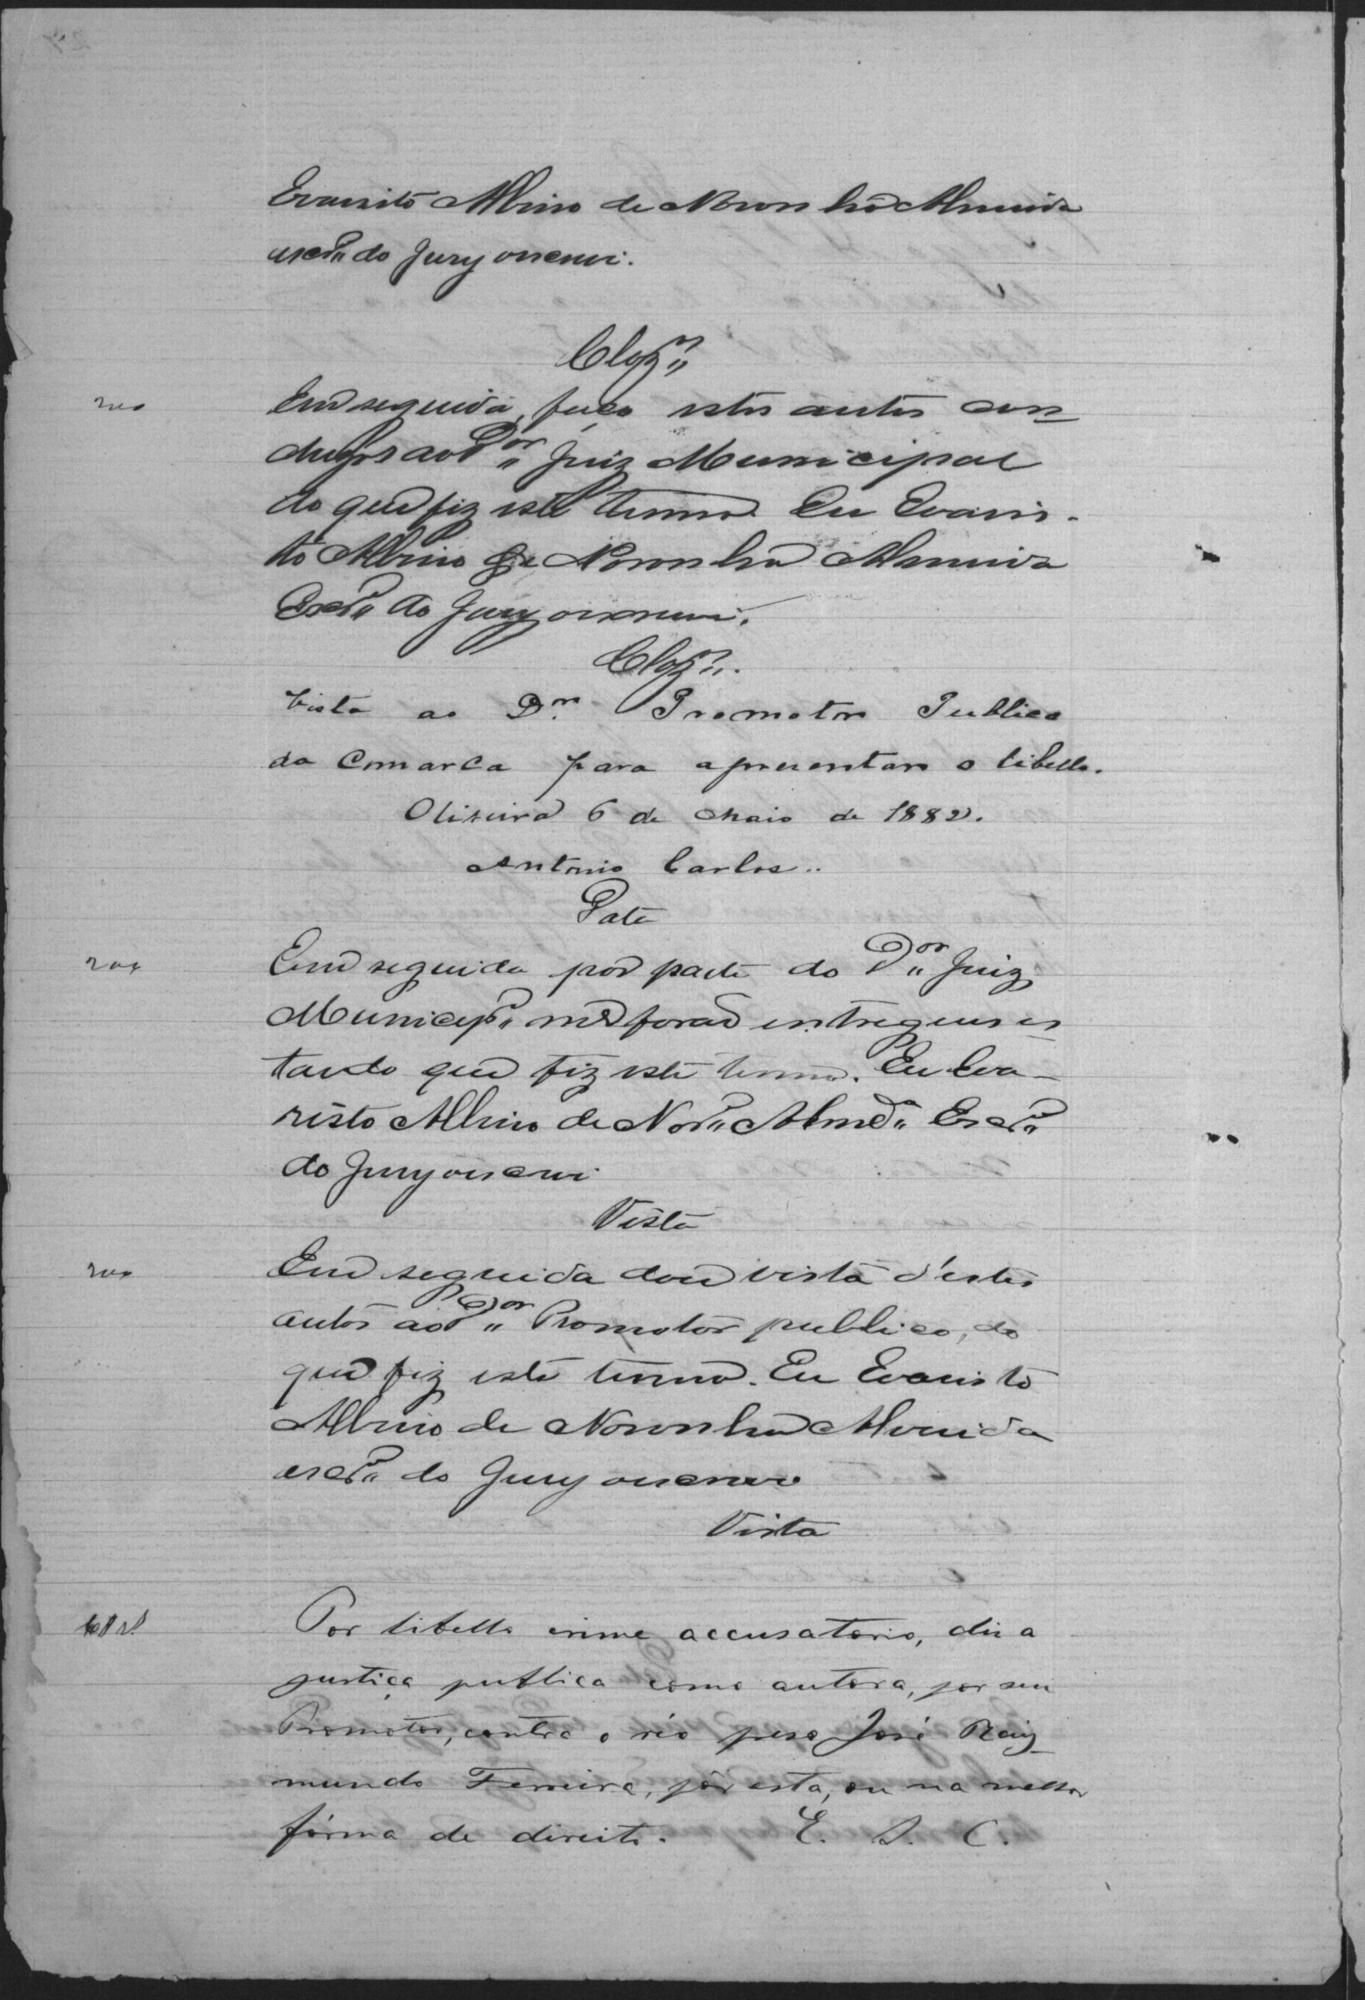 Evaristo Albino de Noronha Almeida
escrᵐ do Jury oescrevi.
Clozᵐ
200
Em seguida, faço estes autos con-
cluzos ao Dᵒʳ Juiz Municipal
do que fiz este termo. Eu Evaris-
to Albino de Noronha Almeida
Escrᵐ do Jury oescrevi.
Clozᵐ.
Vista ao Dʳ. Promotor Publico
da Comarca para apresentar o libello.
Oliveira 6 de Maio de 1882.
Antonio Carlos..
Data
200
Em seguida por parte do Dᵒʳ Juiz
Municipᵃˡ me forão entregues es
tando que fiz este termo. Eu Eva-
risto Albino de Norᵃ Almdᵃ Escrᵐ
do Jury oescrevi
Vista
200
Em seguida dou vista d'estes
autos ao Dᵒʳ Promotor publico, do
que fiz este termo. Eu Evaristo
Albino de Noronha Almeida
escrᵐ do Jury oescrevi
Vista
Por libello crime accusatorio, diz a
justiça publica como autora, por seu
Promotor, contra o réo preso José Ray-
mundo Ferreira, pôr esta, ou na melhor
fórma de direito. E. S. C.